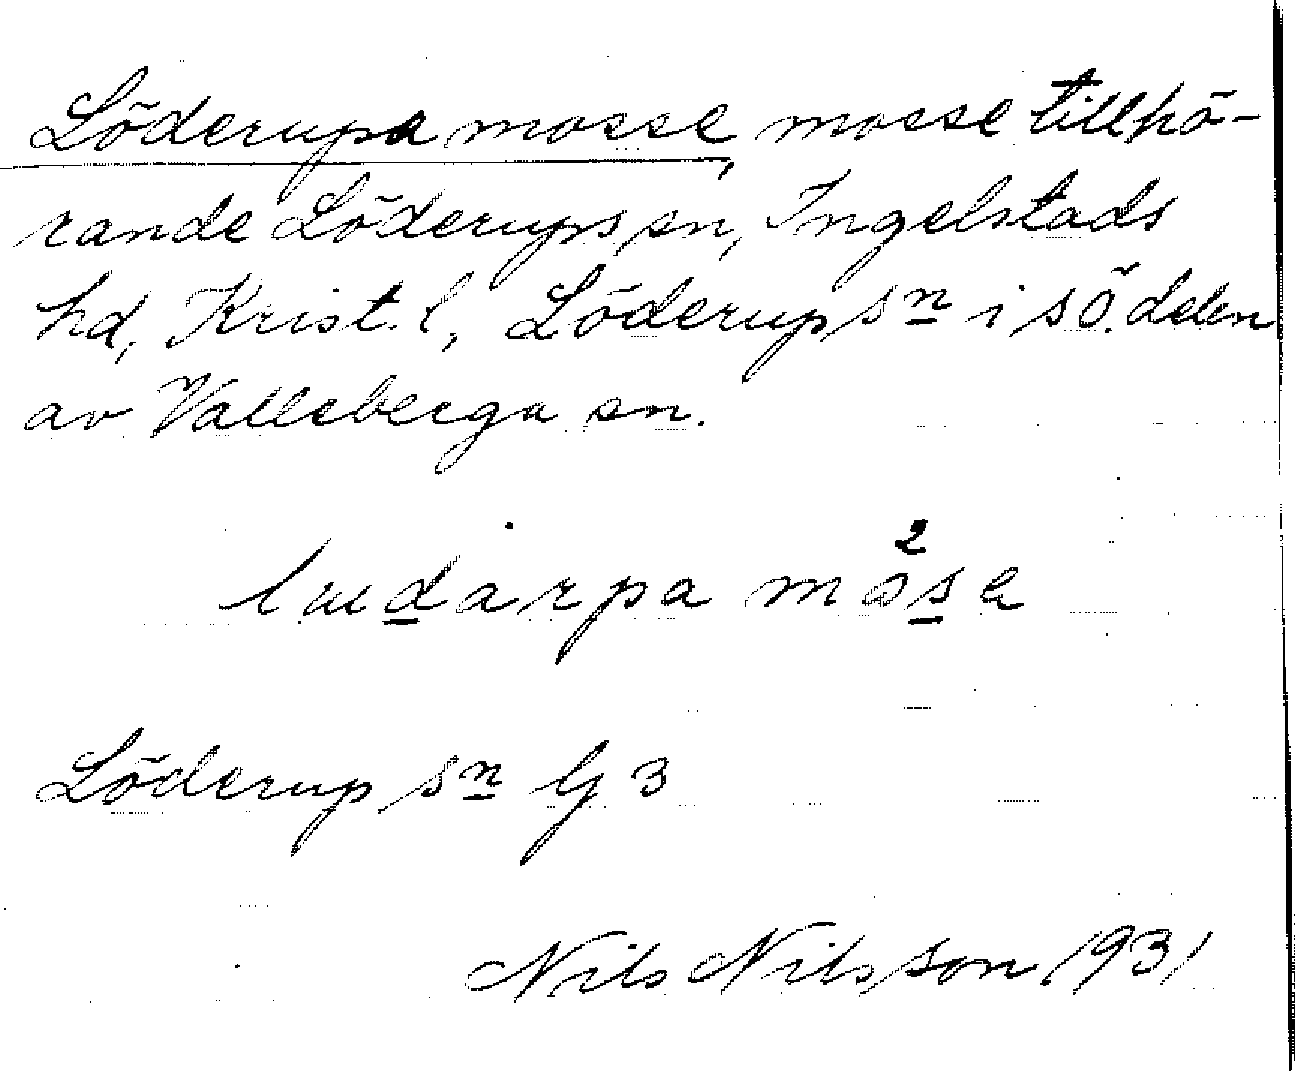 Löderupa mosse, mosse tillhö-
rande Löderups sn, Ingelstads
hd, Krist. l, Löderup sn i sö. delen
av Valleberga sn.
mosa
Löderup sn G 3
Nils Nilsson 1931